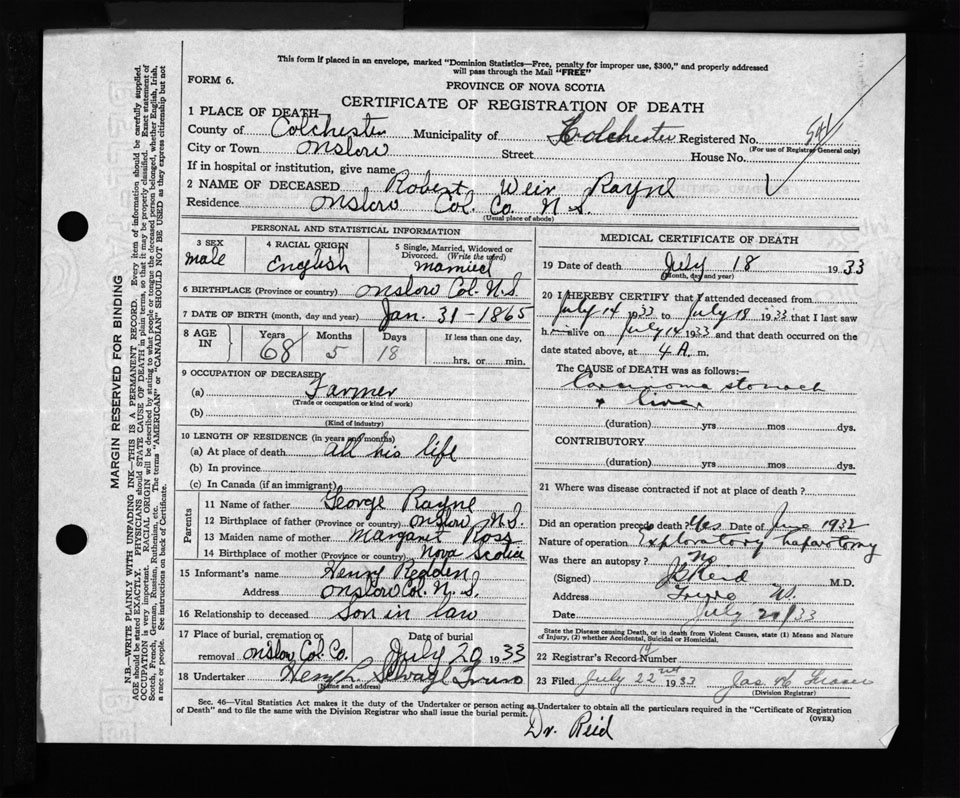 This form if placed in an envelope, marked "Dominion Statistics—Free, penalty for improper use, $300," and properly addressed
will pass through the Mail "FREE"
FORM 6.
PROVINCE OF NOVA SCOTIA
CERTIFICATE OF REGISTRATION OF DEATH
1 PLACE OF DEATH
County of Colchester Municipality of Colchester Registered No.
(For use of Registrar General only)
City or Town Onslow Street House No.
If in hospital or institution, give name
2 NAME OF DECEASED Robert Weir Rayne
Residence Onslow Col. Co. N.S.
(Usual place of abode)
PERSONAL AND STATISTICAL INFORMATION
3 SEX 4 RACIAL ORIGIN 5 Single, Married, Widowed or
Divorced. (Write the word)
male English married
6 BIRTHPLACE (Province or country) Onslow Col. N.S.
7 DATE OF BIRTH (month, day and year) Jan. 31-1865
8 AGE IN Years Months Days If less than one day,
68 5 18 hrs. or min.
9 OCCUPATION OF DECEASED
(a) Farmer
(Trade or occupation or kind of work)
(b)
(Kind of industry)
10 LENGTH OF RESIDENCE (in years and months)
(a) At place of death all his life
(b) In province
(c) In Canada (if an immigrant)
Parents
11 Name of father George Rayne
12 Birthplace of father (Province or country) Onslow N.S.
13 Maiden name of mother Margaret Ross
14 Birthplace of mother (Province or country) Nova Scotia
15 Informant's name Henry Redden
Address Onslow Col. N.S.
16 Relationship to deceased Son in law
17 Place of burial, cremation or Date of burial
removal Onslow Col. Co. July 20 1933
18 Undertaker Truro
(Name and address)
MEDICAL CERTIFICATE OF DEATH
19 Date of death July 18 1933
(Month, day and year)
20 I HEREBY CERTIFY that I attended deceased from
July 14 1933 to July 18 1933 that I last saw
h alive on July 14 1933 and that death occurred on the
date stated above, at 4 A. m.
The CAUSE of DEATH was as follows:—
Carcinoma stomach
+ liver
(duration) yrs mos dys.
CONTRIBUTORY
(duration) yrs. mos dys.
21 Where was disease contracted if not at place of death?
Did an operation precede death? Yes Date of June 1932
Nature of operation Exploratory Laparotomy
Was there an autopsy? No
(Signed) Reid M.D.
Address Truro
Date July 20/33
State the Disease causing Death, or in death from Violent Causes, state (1) Means and Nature
of Injury, (2) whether Accidental, Suicidal or Homicidal.
22 Registrar's Record Number
23 Filed July 22nd 1933 Jas. H. Fraser
(Division Registrar)
Sec. 46—Vital Statistics Act makes it the duty of the Undertaker or person acting as Undertaker to obtain all the particulars required in the "Certificate of Registration
of Death" and to file the same with the Division Registrar who shall issue the burial permit.
(OVER)
Dr. Reid
MARGIN RESERVED FOR BINDING
N.B.—WRITE PLAINLY WITH UNFADING INK—THIS IS A PERMANENT RECORD. Every item of information should be carefully supplied.
AGE should be stated EXACTLY. PHYSICIANS should STATE CAUSE OF DEATH in plain terms, so that it may be properly classified. Exact statement of
OCCUPATION is very important. RACIAL ORIGIN will be described by stating to what people or tongue the deceased person belonged, whether English, Irish,
Scotch, French, German, Russian, Ruthenian, etc. The terms "AMERICAN" or "CANADIAN" SHOULD NOT BE USED as they express citizenship but not
a race or people. See instructions on back of Certificate.